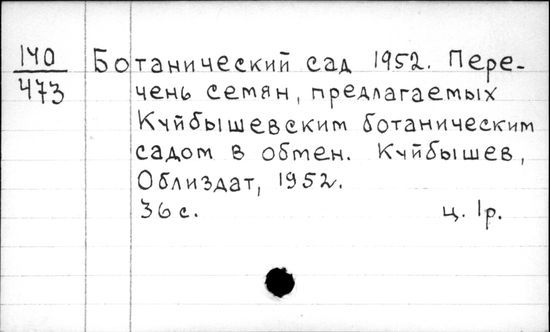 140
473
Ботанический сад 1952. Пере-
чень семян, предлагаемых
Куйбышевским ботаническим
садом в обмен. Куйбышев,
Облиздат, 1952.
36 с. ц. 1р.